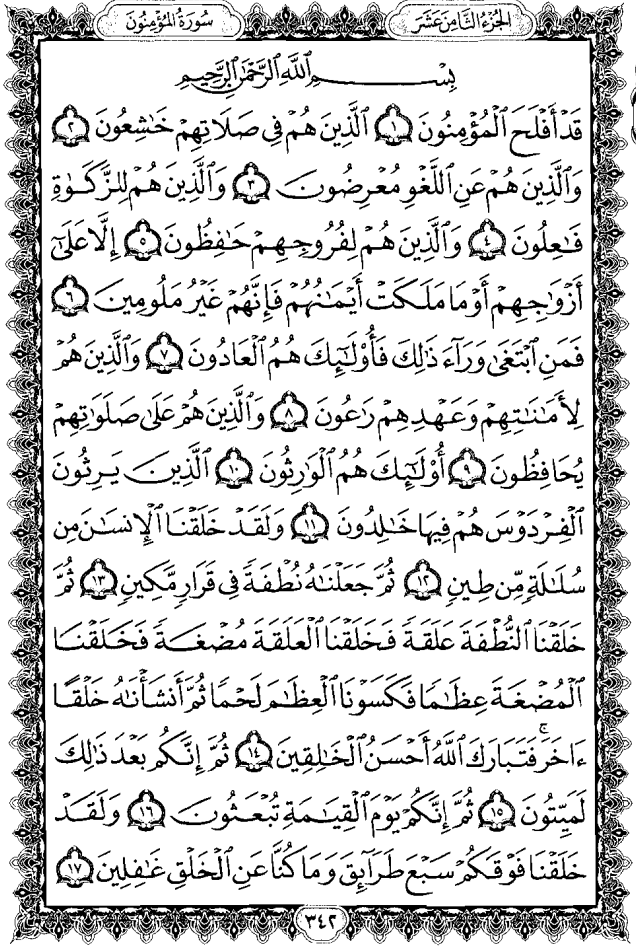 الجزء الثامن عشر
سورة المؤمنون
بِسْمِ اللَّهِ الرَّحْمَٰنِ الرَّحِيمِ
قَدْ أَفْلَحَ الْمُؤْمِنُونَ ١ الَّذِينَ هُمْ فِي صَلَاتِهِمْ خَاشِعُونَ ٢
وَالَّذِينَ هُمْ عَنِ اللَّغْوِ مُعْرِضُونَ ٣ وَالَّذِينَ هُمْ لِلزَّكَوٰةِ
فَاعِلُونَ ٤ وَالَّذِينَ هُمْ لِفُرُوجِهِمْ حَافِظُونَ ٥ إِلَّا عَلَىٰ
أَزْوَاجِهِمْ أَوْ مَا مَلَكَتْ أَيْمَانُهُمْ فَإِنَّهُمْ غَيْرُ مَلُومِينَ ٦
فَمَنِ ابْتَغَىٰ وَرَاءَ ذَٰلِكَ فَأُولَٰئِكَ هُمُ الْعَادُونَ ٧ وَالَّذِينَ هُمْ
لِأَمَانَاتِهِمْ وَعَهْدِهِمْ رَاعُونَ ٨ وَالَّذِينَ هُمْ عَلَىٰ صَلَوَاتِهِمْ
يُحَافِظُونَ ٩ أُولَٰئِكَ هُمُ الْوَارِثُونَ ١٠ الَّذِينَ يَرِثُونَ
الْفِرْدَوْسَ هُمْ فِيهَا خَالِدُونَ ١١ وَلَقَدْ خَلَقْنَا الْإِنسَانَ مِن
سُلَالَةٍ مِّن طِينٍ ١٢ ثُمَّ جَعَلْنَاهُ نُطْفَةً فِي قَرَارٍ مَّكِينٍ ١٣ ثُمَّ
خَلَقْنَا النُّطْفَةَ عَلَقَةً فَخَلَقْنَا الْعَلَقَةَ مُضْغَةً فَخَلَقْنَا
الْمُضْغَةَ عِظَامًا فَكَسَوْنَا الْعِظَامَ لَحْمًا ثُمَّ أَنشَأْنَاهُ خَلْقًا
ءَاخَرَ ۚ فَتَبَارَكَ اللَّهُ أَحْسَنُ الْخَالِقِينَ ١٤ ثُمَّ إِنَّكُم بَعْدَ ذَٰلِكَ
لَمَيِّتُونَ ١٥ ثُمَّ إِنَّكُمْ يَوْمَ الْقِيَامَةِ تُبْعَثُونَ ١٦ وَلَقَدْ
خَلَقْنَا فَوْقَكُمْ سَبْعَ طَرَائِقَ وَمَا كُنَّا عَنِ الْخَلْقِ غَافِلِينَ ١٧
٣٤٢